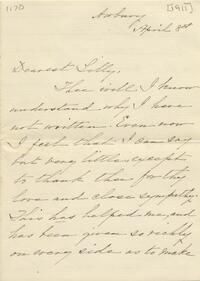 1170
[1911]
Awbury
April 8th
Dearest Lilly,
Thee will I know
understand why I have
not written. Even now
I feel that I can say
but very little except
to thank thee for thy
love and close sympathy.
This has helped me, and
has been given so richly
on every side as to make